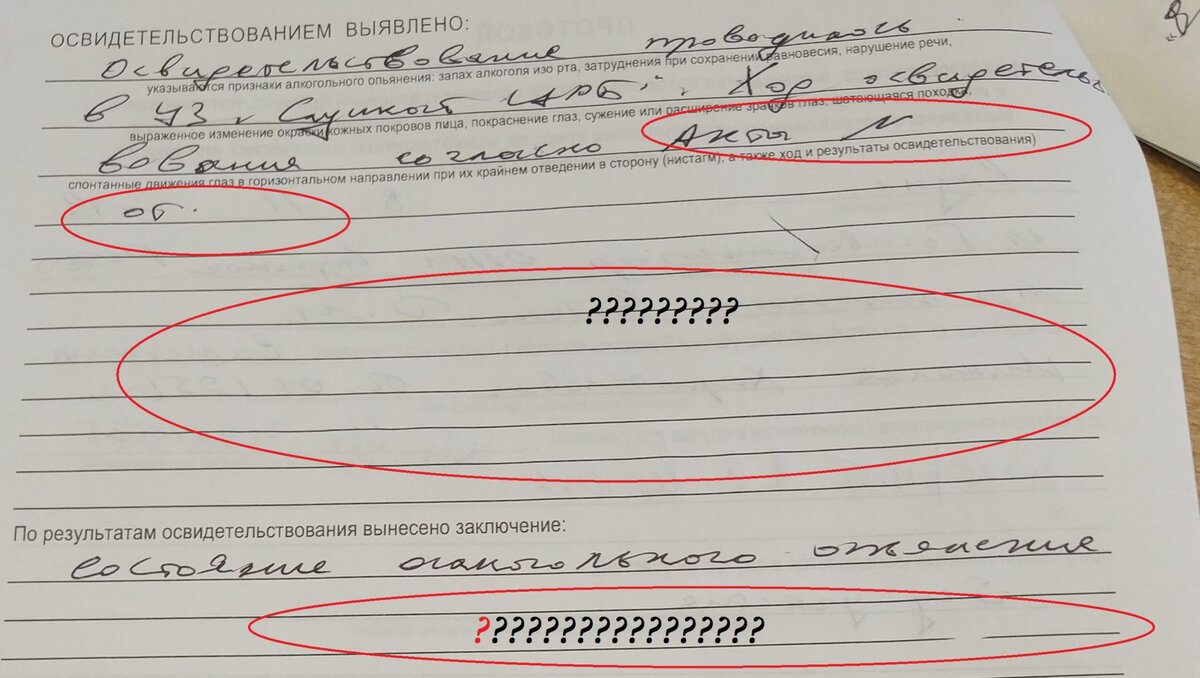 ОСВИДЕТЕЛЬСТВОВАНИЕМ ВЫЯВЛЕНО:
Освидетельствование проводилось
указываются признаки алкогольного опьянения: запах алкоголя изо рта, затруднения при сохранении равновесия, нарушение речи,
в УЗ "Слуцкой ЦРБ". Ход освидетельст-
выраженное изменение окраски кожных покровов лица, покраснение глаз, сужение или расширение зрачков глаз, шатающаяся походка,
вования согласно Акты N
спонтанные движения глаз в горизонтальном направлении при их крайнем отведении в сторону (нистагм), а также ход и результаты освидетельствования)
от.
?????????
По результатам освидетельствования вынесено заключение:
состояние алкогольного опьянения
?????????????????